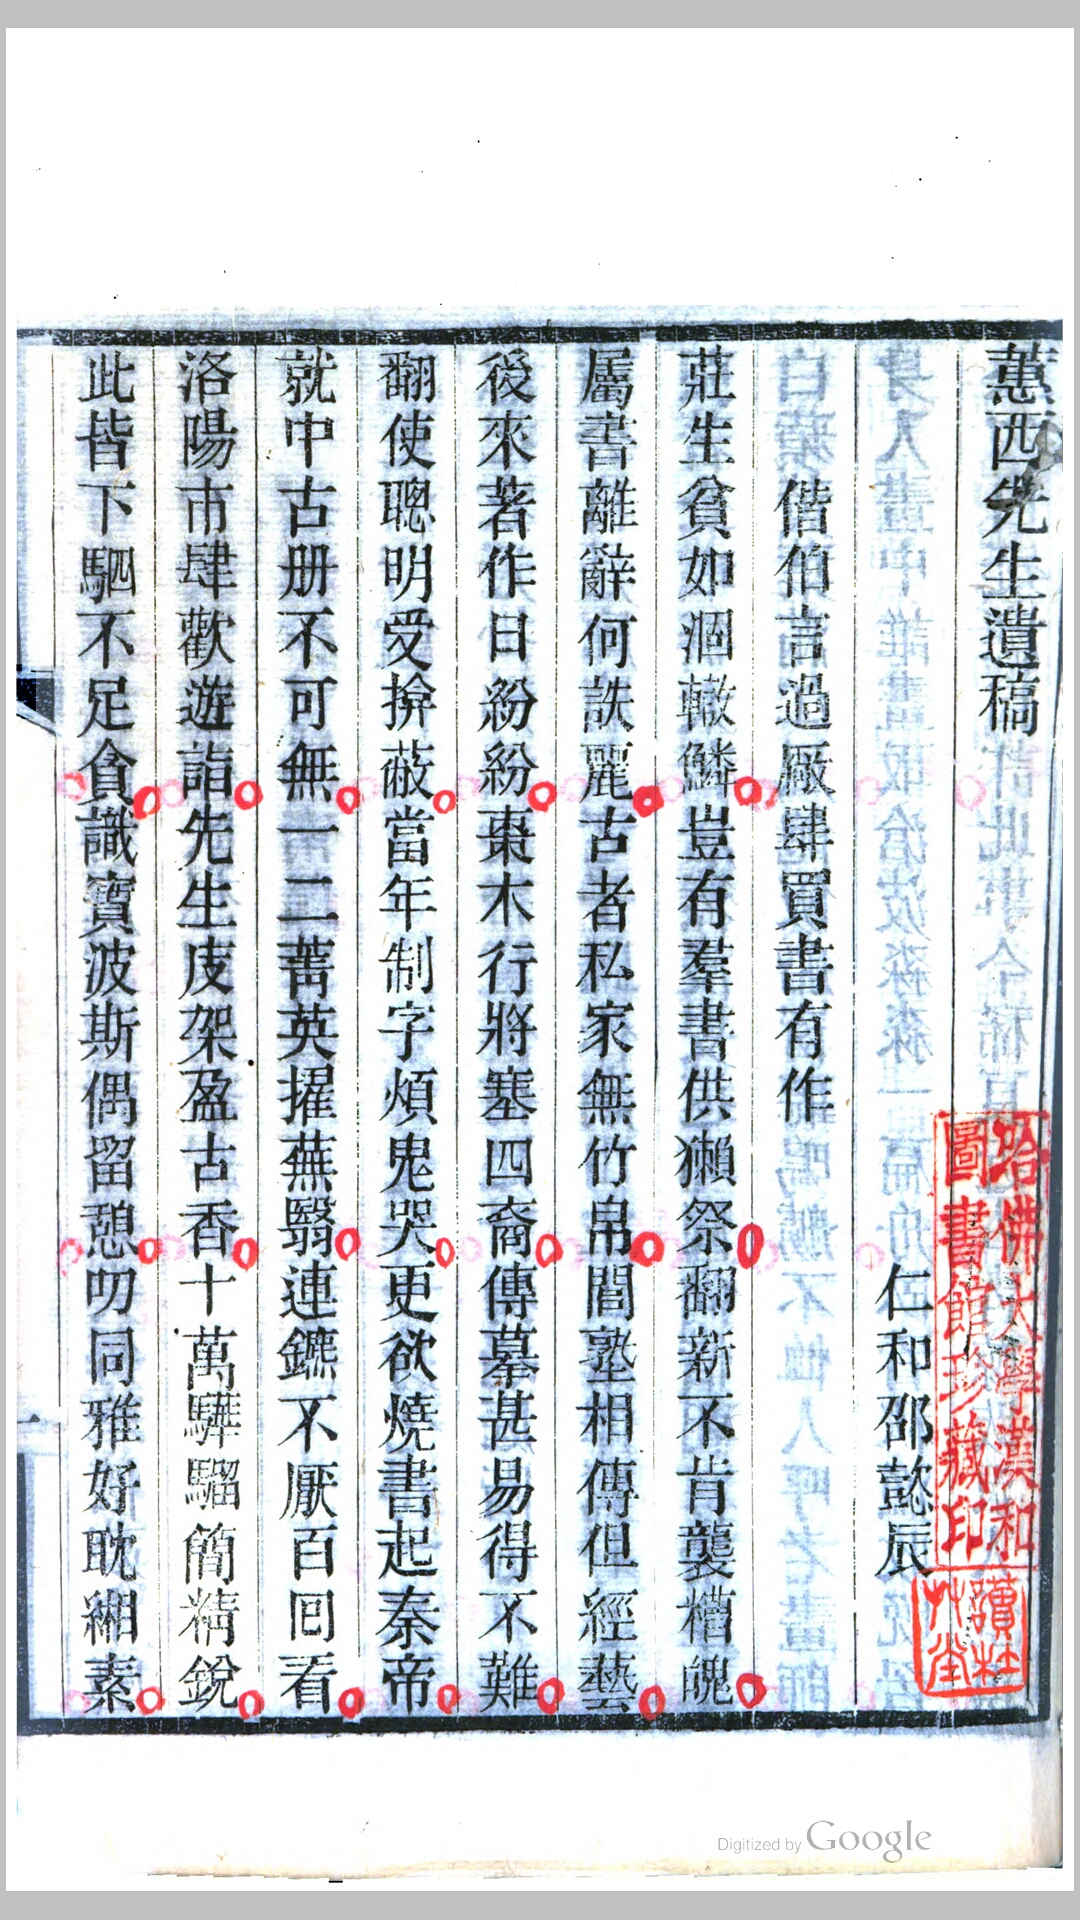 蕙西先生遺稿
仁和邵懿辰
偕伯言過廠肆買書有作
莊生貧如涸轍鱗豈有羣書供獺祭翻新不肯襲糟魄
屬書離辭何詄麗古者私家無竹帛閭塾相傳但經藝
後來著作日紛紛棗木行將塞四裔傳摹甚易得不難
翻使聰明受揜蔽當年制字煩鬼哭更欲燒書起秦帝
就中古册不可無一二菁英擢蕪翳連鑣不厭百回看
洛陽市肆歡遊詣先生庋架盈古香十萬驊騮簡精銳
此皆下駟不足貪識寶波斯偶留憩叨同雅好眈緗素
哈佛大學漢和
圖書館珍藏印
讀杜
艸堂
Digitized by Google